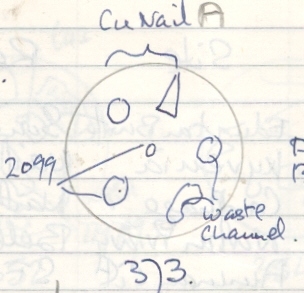 Cu Nail A
2099
waste
channel.
373.